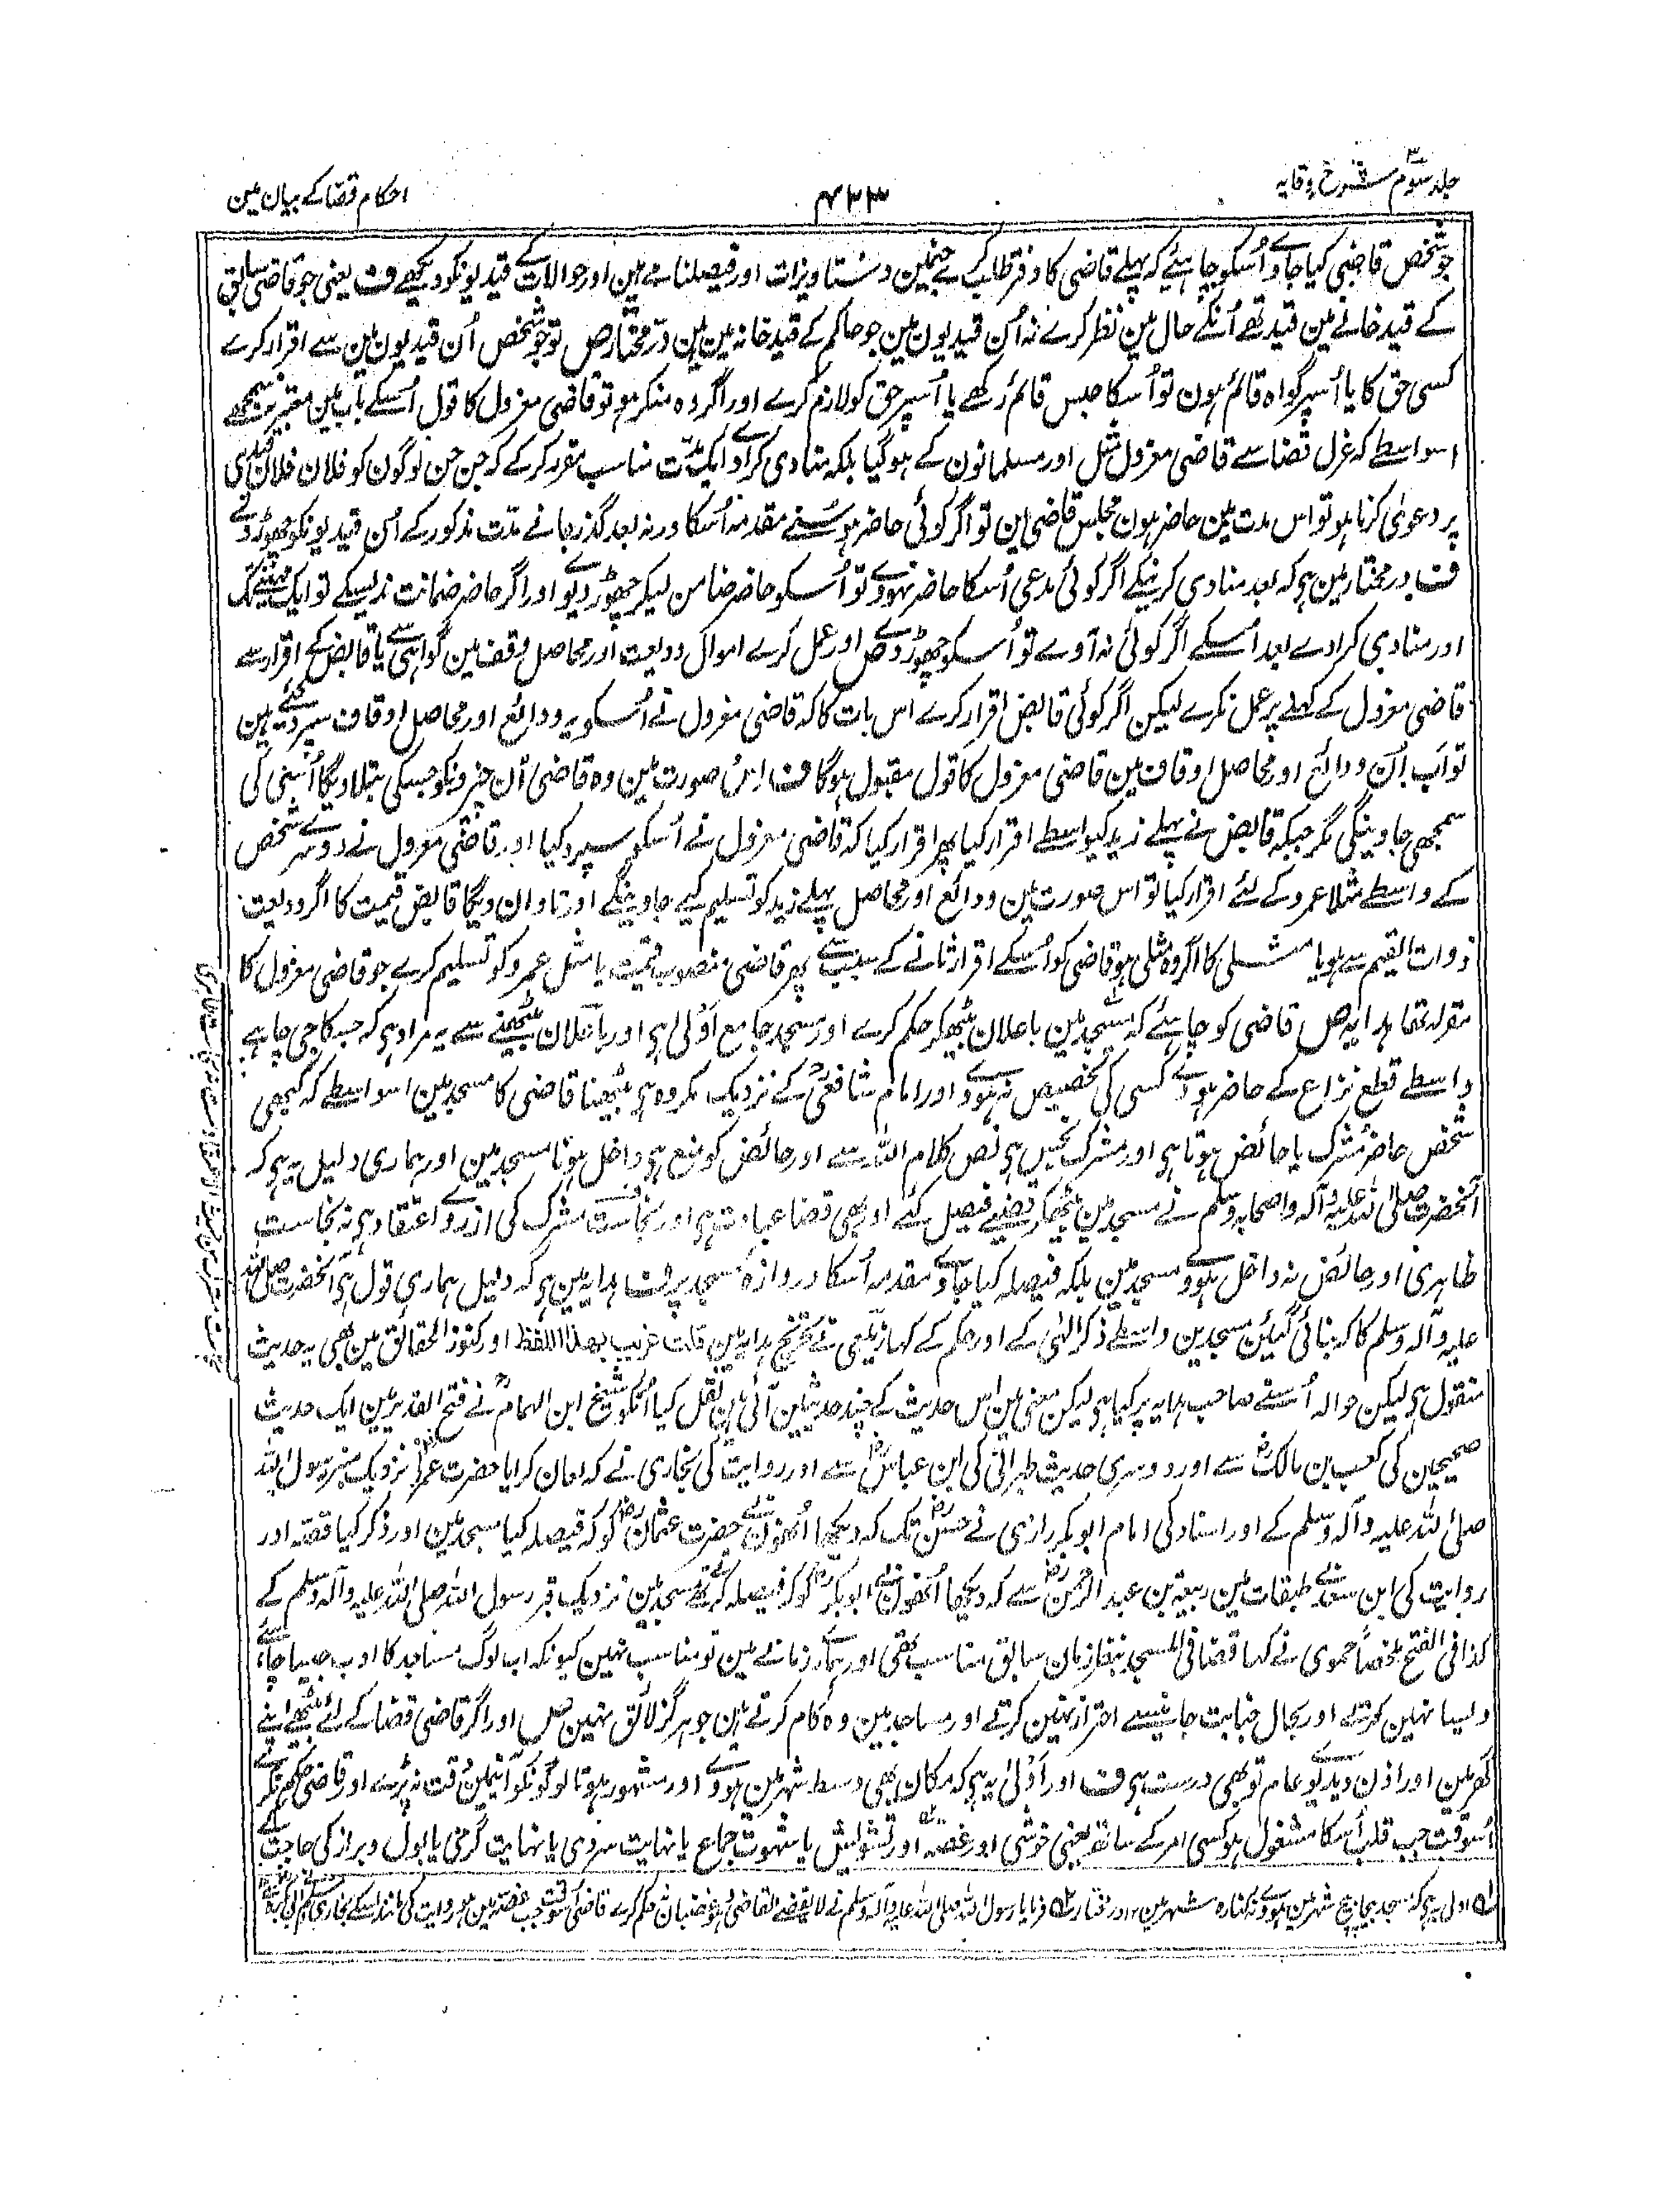 جلد سوم شرح وقایہ
۴۳۳
احکام قضا کے بیان مین
جو شخص قاضی کیا جاوے اُسکو چاہیئے کہ پہلے قاضی کا دفتر طلب کرے جسمین دستاویزات اور فیصلنامے ہین اور حوالات کے قیدیونکو دیکھے ف یعنی جو قاضی سابق
کے قید خانے مین قید تھے اُنکے حال مین نظر کرے نہ اُن قیدیون مین جو حاکم کے قید خانہ مین ہین درّ مختار ص تو جو شخص اُن قیدیون مین سے اقرار کرے
کسی حق کا یا اُسپر گواہ قائم ہون تو اُسکا حبس قائم رکھے یا اُسپر حق کو لازم کرے اور اگر وہ منکر ہو تو قاضی معزول کا قول اُسکے باب مین معتبر نہ سمجھے
اسواسطے کہ عزل قضا سے قاضی معزول مثل اور مسلمانون کے ہو گیا بلکہ منادی کرا دے ایک مدّت مناسب مقرر کر کے کہ جن جن لوگون کو فلان فلان قیدی
پر دعویٰ کرنا ہو تو اس مدت مین حاضر ہون مجلس قاضی مین تو اگر کوئی حاضر ہو سُنے مقدمہ اُسکا ورنہ بعد گذر جانے مدّت مذکور کے اُن قیدیونکو چھوڑ دے
ف درمختار مین ہی کہ بعد منادی کرنیکے اگر کوئی مدعی اُسکا حاضر نہووے تو اُسکو حاضر ضامن لیکر چھوڑ دیوے اور اگر حاضر ضمانت ندلیسکے تو ایک مہینے تک
اور منادی کرا دے بعد اُسکے اگر کوئی نہ آوے تو اُسکو چھوڑ دے ص اور عمل کرے اموال ودیعت اور محاصل وقف مین گواہی سے یا قابض کے اقرار سے
قاضی معزول کے کہنے پر عمل نکرے لیکن اگر کوئی قابض اقرار کرے اس بات کا کہ قاضی معزول نے اُسکو یہ ودائع اور محاصل اوقاف سپرد کئے ہین
تو اَب اُن ودائع اور محاصل اوقاف مین قاضی معزول کا قول مقبول ہوگا ف اِس صورت مین وہ قاضی اُن چیزونکو جسکی بتلا دیگا اُسی کی
سمجھی جاوینگی مگر جبکہ قابض نے پہلے زید کیواسطے اقرار کیا پھر اقرار کیا کہ قاضی معزول نے اُسکو سپرد کیا اور قاضی معزول نے دوسرے شخص
کے واسطے مثلاً عمرو کے لئے اقرار کیا تو اس صورت مین ودائع اور محاصل پہلے زید کو تسلیم کیے جاوینگے اور تاوان دیگا قابض قیمت کا اگر ودیعت
ذوات القیم سے ہو یا مثلی کا اگر وہ مثلی ہو قاضی کو اُسکے اقرار ثانی کے سبب سے پھر قاضی منصوب قیمت یا مثل عمرو کو تسلیم کرے جو قاضی معزول کا
مقر لہ تھا ہدایہ ص قاضی کو چاہیئے کہ مسجد مین باعلان بیٹھکر حکم کرے اور مسجد جامع اَولیٰ ہی اور باعلان بیٹھنے سے یہ مراد ہی کہ جسکا جی چاہے
واسطے قطع نزاع کے حاضر ہووے کسی کی تخصیص نہووے اور امام شافعیؒ کے نزدیک مکروہ ہی بیٹھنا قاضی کا مسجد مین اسواسطے کہ کبھی
شخص حاضر مشرک یا حائض ہوتا ہی اور مشرک نجس ہی نص کلام اللہ سے اور حائض کو منع ہی داخل ہونا مسجد مین اور ہماری دلیل یہ ہی کہ
آنحضرت صلی اللہ علیہ وآلہ واصحابہ وسلم نے مسجد مین بیٹھکر قضیے فیصل کئے اور بھی قضا عبادت ہی اور نجاست مشرک کی از روے اعتقاد ہی نہ نجاست
ظاہری اور حائض نہ داخل ہووے مسجد مین بلکہ فیصلہ کیا جاوے مقدمہ اُسکا دروازۂ مسجد پر ف ہدایہ مین ہی کہ دلیل ہماری قول ہی آنحضرت صلی اللہ
علیہ وآلہ وسلم کا کہ بنائی گئین مسجدین واسطے ذکر الٰہی کے اور حکم کے کہا زیلعی نے تخریج ہدایہ مین قلت غریب بھذا اللفظ اور کنوز الحقائق مین بھی یہ حدیث
منقول ہی لیکن حوالہ اُسنے صاحب ہدایہ پر کیا ہی لیکن معنی مین اس حدیث کے چند حدیثین آئی ہین نقل کیا اُنکو شیخ ابن الہمامؒ نے فتح القدیر مین ایک حدیث
صحیحین کی کعب بن مالکؓ سے اور دوسری حدیث طبرانی کی ابن عباسؓ سے اور روایت کی بخاری نے کہ لعان کرایا حضرت عمرؓ نے نزدیک منبر رسول اللہ
صلی اللہ علیہ وآلہ وسلم کے اور اسناد کی امام ابوبکر رازی نے حسنؓ تک کہ دیکھا اُنھون نے حضرت عثمانؓ کو کہ فیصلہ کیا مسجد مین اور ذکر کیا قصّہ اور
روایت کی ابن سعد نے طبقات مین ربیعہ بن عبد الرحمٰنؓ سے کہ دیکھا اُنھون نے ابوبکرؓ کو کہ فیصلہ کرتے تھے مسجد مین نزدیک قبر رسول اللہ صلی اللہ علیہ وآلہ وسلم کے
کذا فی الفتح ملخصاً حموی نے کہا قضا فی المسجد بنظر زمان سابق مناسب تھی اور ہمارے زمانے مین تو مناسب نہین کیونکہ اب لوگ مساجد کا ادب جیسا چاہیے
ویسا نہین کرتے اور بحال جنابت جانیسے احتراز نہین کرتے اور مساجد مین وہ کام کرتے ہین جو ہرگز لائق نہین ص اور اگر قاضی قضا کے لئے بیٹھے اپنے
گھر مین اور اذن دیدیوے عام تو بھی درست ہی ف اور اَولیٰ یہ ہی کہ مکان بھی وسط شہر مین ہووے اور مشہور ہو تا لوگونکو آنیمین دقت نہ پڑے اور قاضی حکم نکرے
اُسوقت جب قلب اُسکا مشغول ہو کسی امر کے ساتھ یعنی خوشی اور غصہ اور تشویش یا شہوت جماع یا نہایت سردی یا نہایت گرمی یا بول و براز کی حاجت
لہ اولی یہ ہی کہ مسجد بیچا بیچ شہر مین ہووے نہ کنارہ شہر مین ۱۲ در مختار ٢ه فرمایا رسول اللہ صلی اللہ علیہ وآلہ وسلم نے لا یقضی القاضی وهو غضبان نہ حکم کرے قاضی اُسوقت جب غصہ مین ہو روایت کی